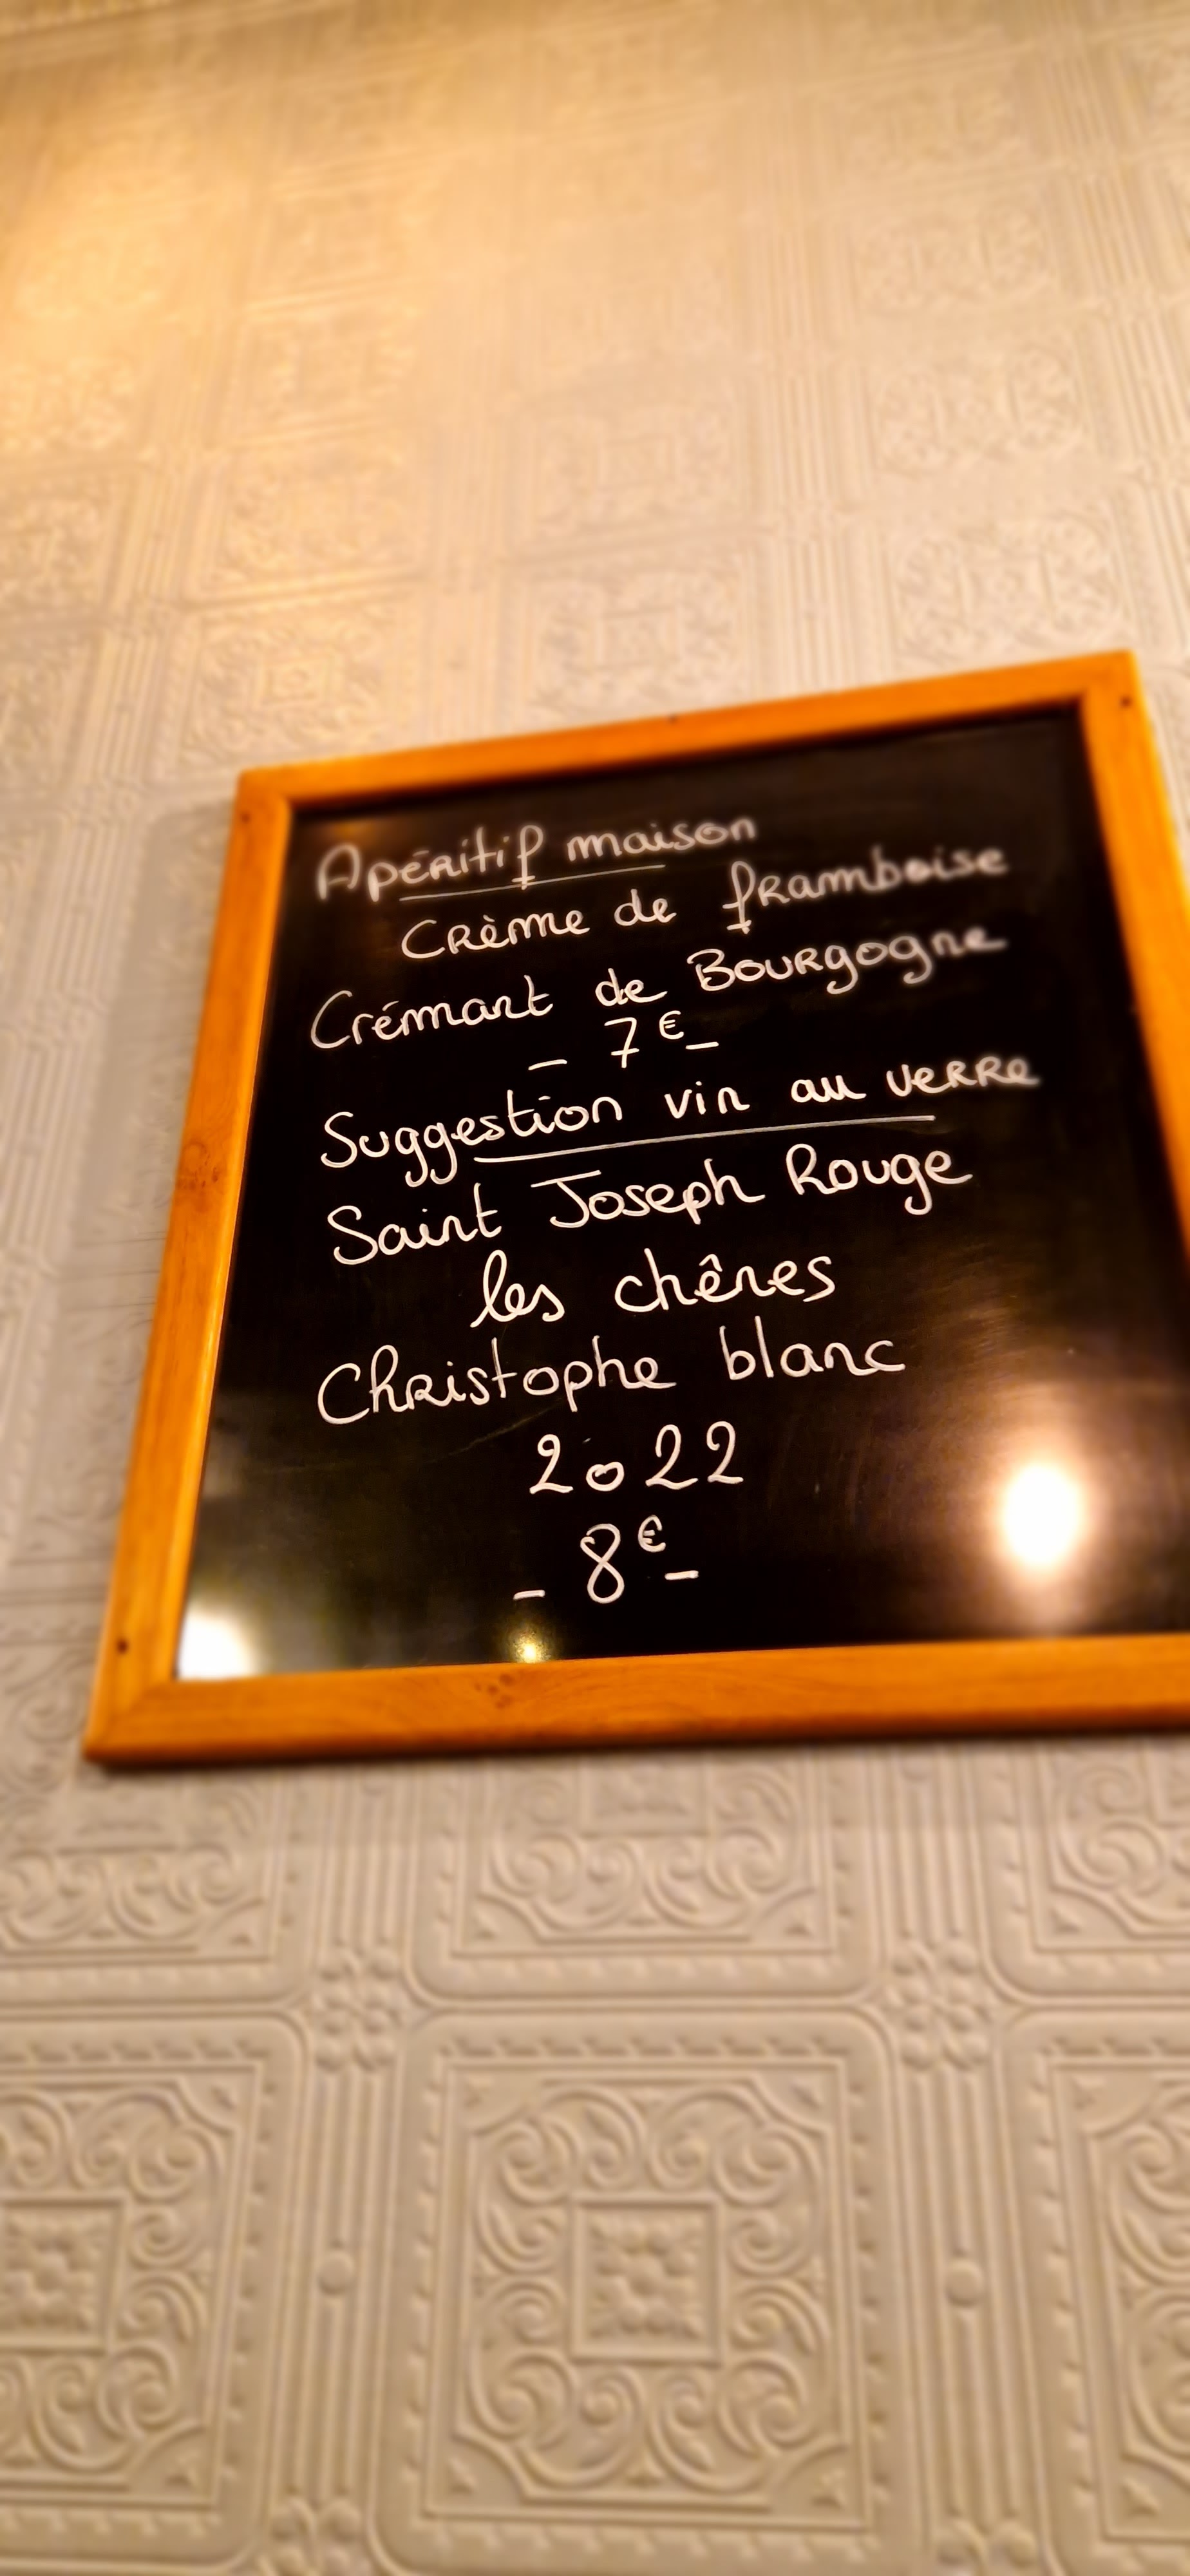 Apéritif maison
Crème de framboise
Crémant de Bourgogne
- 7€-
Suggestion vin au verre
Saint Joseph Rouge
les chênes
Christophe blanc
2022
- 8€-